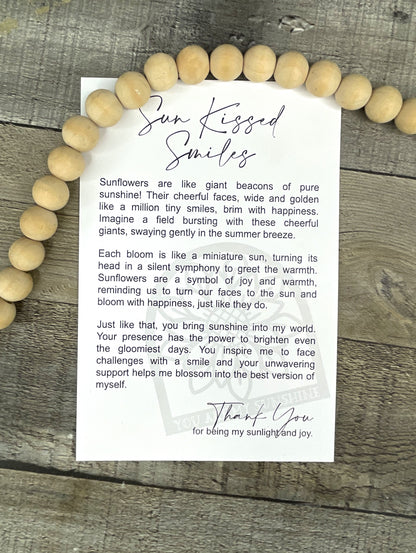 Sun Kissed
Smiles
Sunflowers are like giant beacons of pure
sunshine! Their cheerful faces, wide and golden
like a million tiny smiles, brim with happiness.
Imagine a field bursting with these cheerful
giants, swaying gently in the summer breeze.
Each bloom is like a miniature sun, turning its
head in a silent symphony to greet the warmth.
Sunflowers are a symbol of joy and warmth,
reminding us to turn our faces to the sun and
bloom with happiness, just like they do.
Just like that, you bring sunshine into my world.
Your presence has the power to brighten even
the gloomiest days. You inspire me to face
challenges with a smile and your unwavering
support helps me blossom into the best version of
myself.
Thank You
for being my sunlight and joy.
YOU A SUNSHINE